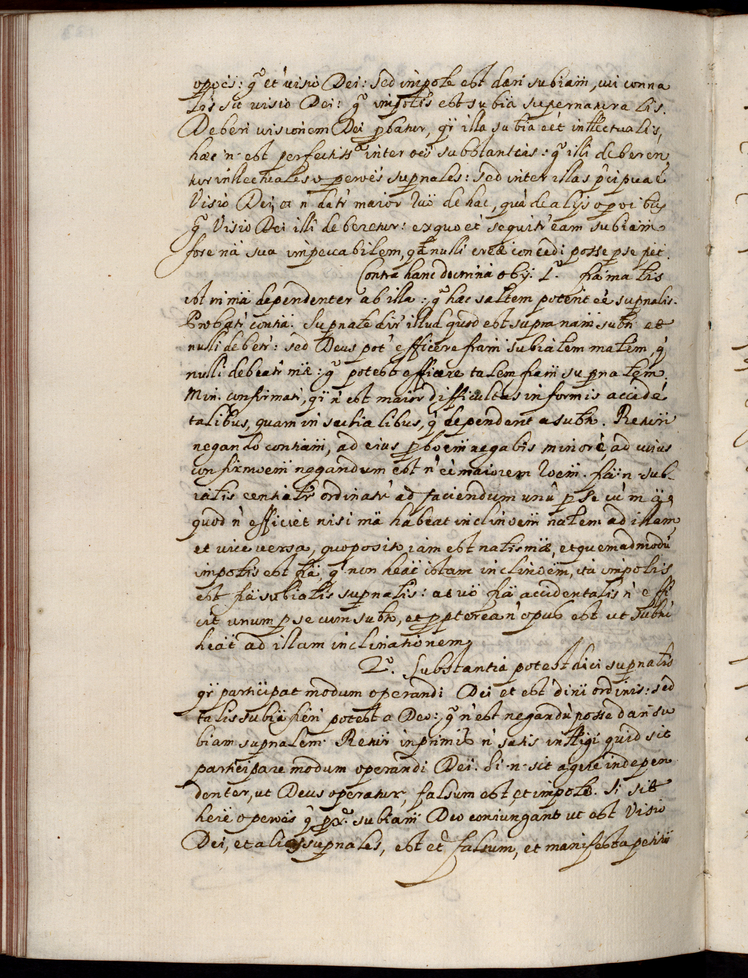 opoēs: g° et visio Dei: sed impote est dari subiam, cui conna
lis sit visio Dei: g° impotis est subia supernatura lis.
Deberi visionem Dei pbatur, qī illa subia eēt intllectualis,
haec n. est perfectiss^a inter oēs substantias: g° illi deberen
tur intllectuales operoēs supnales: sed inter illas pcipua ē
Visio Dei, et n̄ datr̄ maior rō de hac, quā de alijs opoībus
g° Visio Dei illi deberetur: ex quo et̄ sequitr̄ eam subiam
fore nā sua impeccabilem, q̄d nulli creāe concedi posse
Contra hanc doctrinā obij. 1.° frā mālis
est in mā dependenter ab illa: g° haec saltem poterit eē supnalis.
Probatr̄ contiā. Supnale dir̄ illud quod est supra nām subti et
nulli debetr̄: sed Deus pot̄ efficere frām subialem malem, q̄
nulli debeatr̄ māe: g° potest efficere talem frām supnalem.
Min. confirmatr̄, qī n̄ est maior difficultas in formis acciden
talibus, quam in subialibus, q̄ dependent a subto. Resōr
negando contiam, ad eius pboēm negatis minorē, ad cuius
confirmoēm negandum est n̄ eē maiorem roēm. frā n. sub
ialis eentialr̄ ordinatr̄ ad faciendum unū p se cū mā;
quod n̄ efficiet nisi mā habeat inclinoēm nalem ad illam
et vice versa, quo posito, iam est nalis māe, et quemadmodū
impotis est frā, q̄ non heāt istam inclinoēm, ita impotis
est frā subialis supnalis: at vō frā accidentalis n̄ effi
cit unum p se cum subto, et ppterea n̄ opus est ut subtū
heāt ad illam inclinationem.
2°. Substantia potest dici supnalis
qī participat modum operandi Dei et est dini ordinis: sed
talis subiā fieri potest a Deo: g° n̄ est negandū posse dari su
biam supnalem. Resōr inprimis n̄ satis intlligi quid sit
participare modum operandi Dei. Si n. sit agere indepen
denter, ut Deus operatur, falsum est, et impote. Si sit
hēre operoēs q̄ subiam Deo coniungant ut est Visio
Dei, et alias supnales, est et̄ falsum, et manifesta petitio